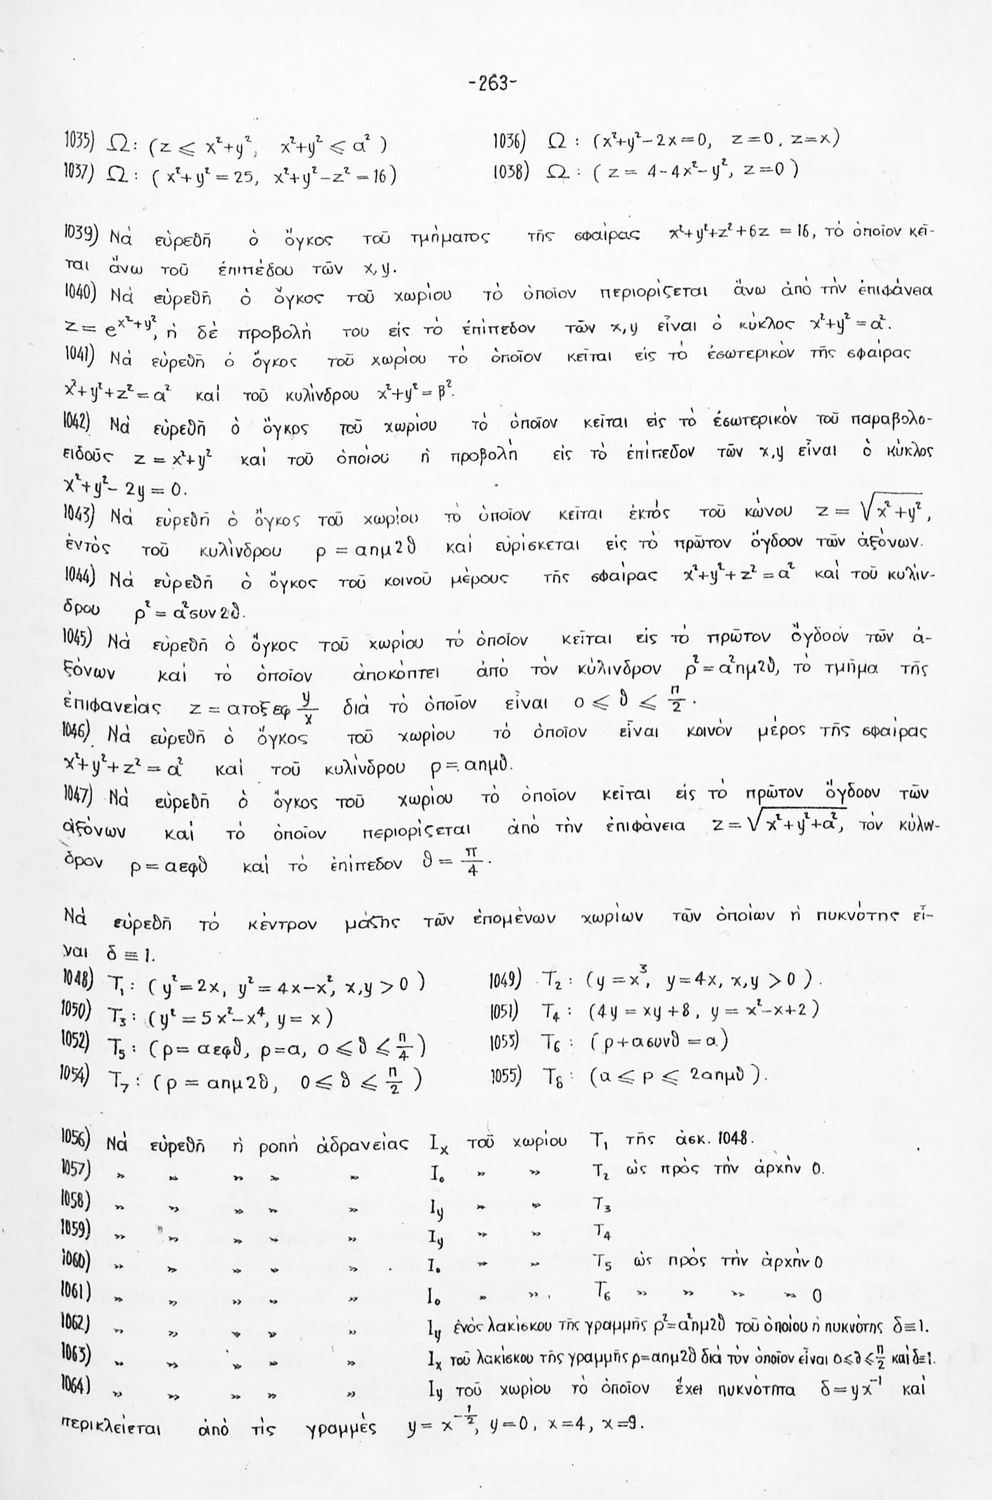 -263-
1035) Ω: (z ⩽ x²+y², x²+y² ⩽ α² ) 1036) Ω : (x²+y²-2x=0, z=0, z=x)
1037) Ω : ( x²+y²=25, x²+y²-z²=16) 1038) Ω : ( z = 4-4x²-y², z=0 )
1039) Νὰ εὑρεθῆ ὁ ὄγκος τοῦ τμήματος τῆς σφαίρας x²+y²+z²+6z = 16, τὸ ὁποῖον κεῖ-
ται ἄνω τοῦ ἐπιπέδου τῶν x,y.
1040) Νὰ εὑρεθῆ ὁ ὄγκος τοῦ χωρίου τὸ ὁποῖον περιορίζεται ἄνω ἀπὸ τὴν ἐπιφάνεια
z = e^{x²+y²}, ἡ δὲ προβολή του εἰς τὸ ἐπίπεδον τῶν x,y εἶναι ὁ κύκλος x²+y² = α².
1041) Νὰ εὑρεθῆ ὁ ὄγκος τοῦ χωρίου τὸ ὁποῖον κεῖται εἰς τὸ ἐσωτερικὸν τῆς σφαίρας
x²+y²+z² = α² καὶ τοῦ κυλίνδρου x²+y² = β².
1042) Νὰ εὑρεθῆ ὁ ὄγκος τοῦ χωρίου τὸ ὁποῖον κεῖται εἰς τὸ ἐσωτερικόν τοῦ παραβολο-
ειδοῦς z = x²+y² καὶ τοῦ ὁποίου ἡ προβολὴ εἰς τὸ ἐπίπεδον τῶν x,y εἶναι ὁ κύκλος
x²+y²- 2y = 0.
1043) Νὰ εὑρεθῆ ὁ ὄγκος τοῦ χωρίου τὸ ὁποῖον κεῖται ἐκτὸς τοῦ κώνου z = √(x²+y²),
ἐντὸς τοῦ κυλίνδρου ρ = αημ2θ καὶ εὑρίσκεται εἰς τὸ πρῶτον ὄγδοον τῶν ἀξόνων.
1044) Νὰ εὑρεθῆ ὁ ὄγκος τοῦ κοινοῦ μέρους τῆς σφαίρας x²+y²+z² = α² καὶ τοῦ κυλίν-
δρου ρ² = α²συν2θ.
1045) Νὰ εὑρεθῆ ὁ ὄγκος τοῦ χωρίου τὸ ὁποῖον κεῖται εἰς τὸ πρῶτον ὄγδοον τῶν ἀ-
ξόνων καὶ τὸ ὁποῖον ἀποκόπτει ἀπὸ τὸν κύλινδρον ρ² = α²ημ2θ, τὸ τμῆμα τῆς
ἐπιφανείας z = ατοξεφ y/x διὰ τὸ ὁποῖον εἶναι 0 ⩽ θ ⩽ π/2.
1046) Νὰ εὑρεθῆ ὁ ὄγκος τοῦ χωρίου τὸ ὁποῖον εἶναι κοινὸν μέρος τῆς σφαίρας
x²+y²+z² = α² καὶ τοῦ κυλίνδρου ρ = αημθ.
1047) Νὰ εὑρεθῆ ὁ ὄγκος τοῦ χωρίου τὸ ὁποῖον κεῖται εἰς τὸ πρῶτον ὄγδοον τῶν
ἀξόνων καὶ τὸ ὁποῖον περιορίζεται ἀπὸ τὴν ἐπιφάνεια z = √(x²+y²+α²), τὸν κύλιν-
δρον ρ = αεφθ καὶ τὸ ἐπίπεδον θ = π/4.
Νὰ εὑρεθῆ τὸ κέντρον μάζης τῶν ἑπομένων χωρίων τῶν ὁποίων ἡ πυκνότης εἶ-
ναι δ ≡ 1.
1048) T₁ : ( y²=2x, y²= 4x-x², x,y > 0 ) 1049) T₂ : (y = x³, y=4x, x,y > 0 ).
1050) T₃ : (y² = 5x²-x⁴, y = x ) 1051) T₄ : (4y = xy+8, y = x²-x+2 )
1052) T₅ : (ρ= αεφθ, ρ=α, 0 ⩽ θ ⩽ π/4 ) 1053) T₆ : (ρ+ασυνθ = α)
1054) T₇ : (ρ = αημ2θ, 0 ⩽ θ ⩽ π/2 ) 1055) T₈ : (α ⩽ ρ ⩽ 2αημθ ).
1056) Νὰ εὑρεθῆ ἡ ροπὴ ἀδρανείας Iₓ τοῦ χωρίου T₁ τῆς ἀσκ. 1048.
1057) " " " " " I₀ " " T₂ ὡς πρὸς τὴν ἀρχὴν 0.
1058) " " " " " I_y " " T₃
1059) " " " " " I_y " " T₄
1060) " " " " " I₀ " " T₅ ὡς πρὸς τὴν ἀρχὴν 0
1061) " " " " " I₀ " " T₆ " " " " 0
1062) " " " " " I_y ἑνὸς λακίσκου τῆς γραμμῆς ρ²=α²ημ2θ τοῦ ὁποίου ἡ πυκνότης δ≡1.
1063) " " " " " Iₓ τοῦ λακίσκου τῆς γραμμῆς ρ=αημ2θ διὰ τὸν ὁποῖον εἶναι 0⩽θ⩽π/2 καὶ δ≡1.
1064) " " " " " I_y τοῦ χωρίου τὸ ὁποῖον ἔχει πυκνότητα δ=yx⁻¹ καὶ
περικλείεται ἀπὸ τὶς γραμμὲς y = x^{-1/2}, y=0, x=4, x=9.